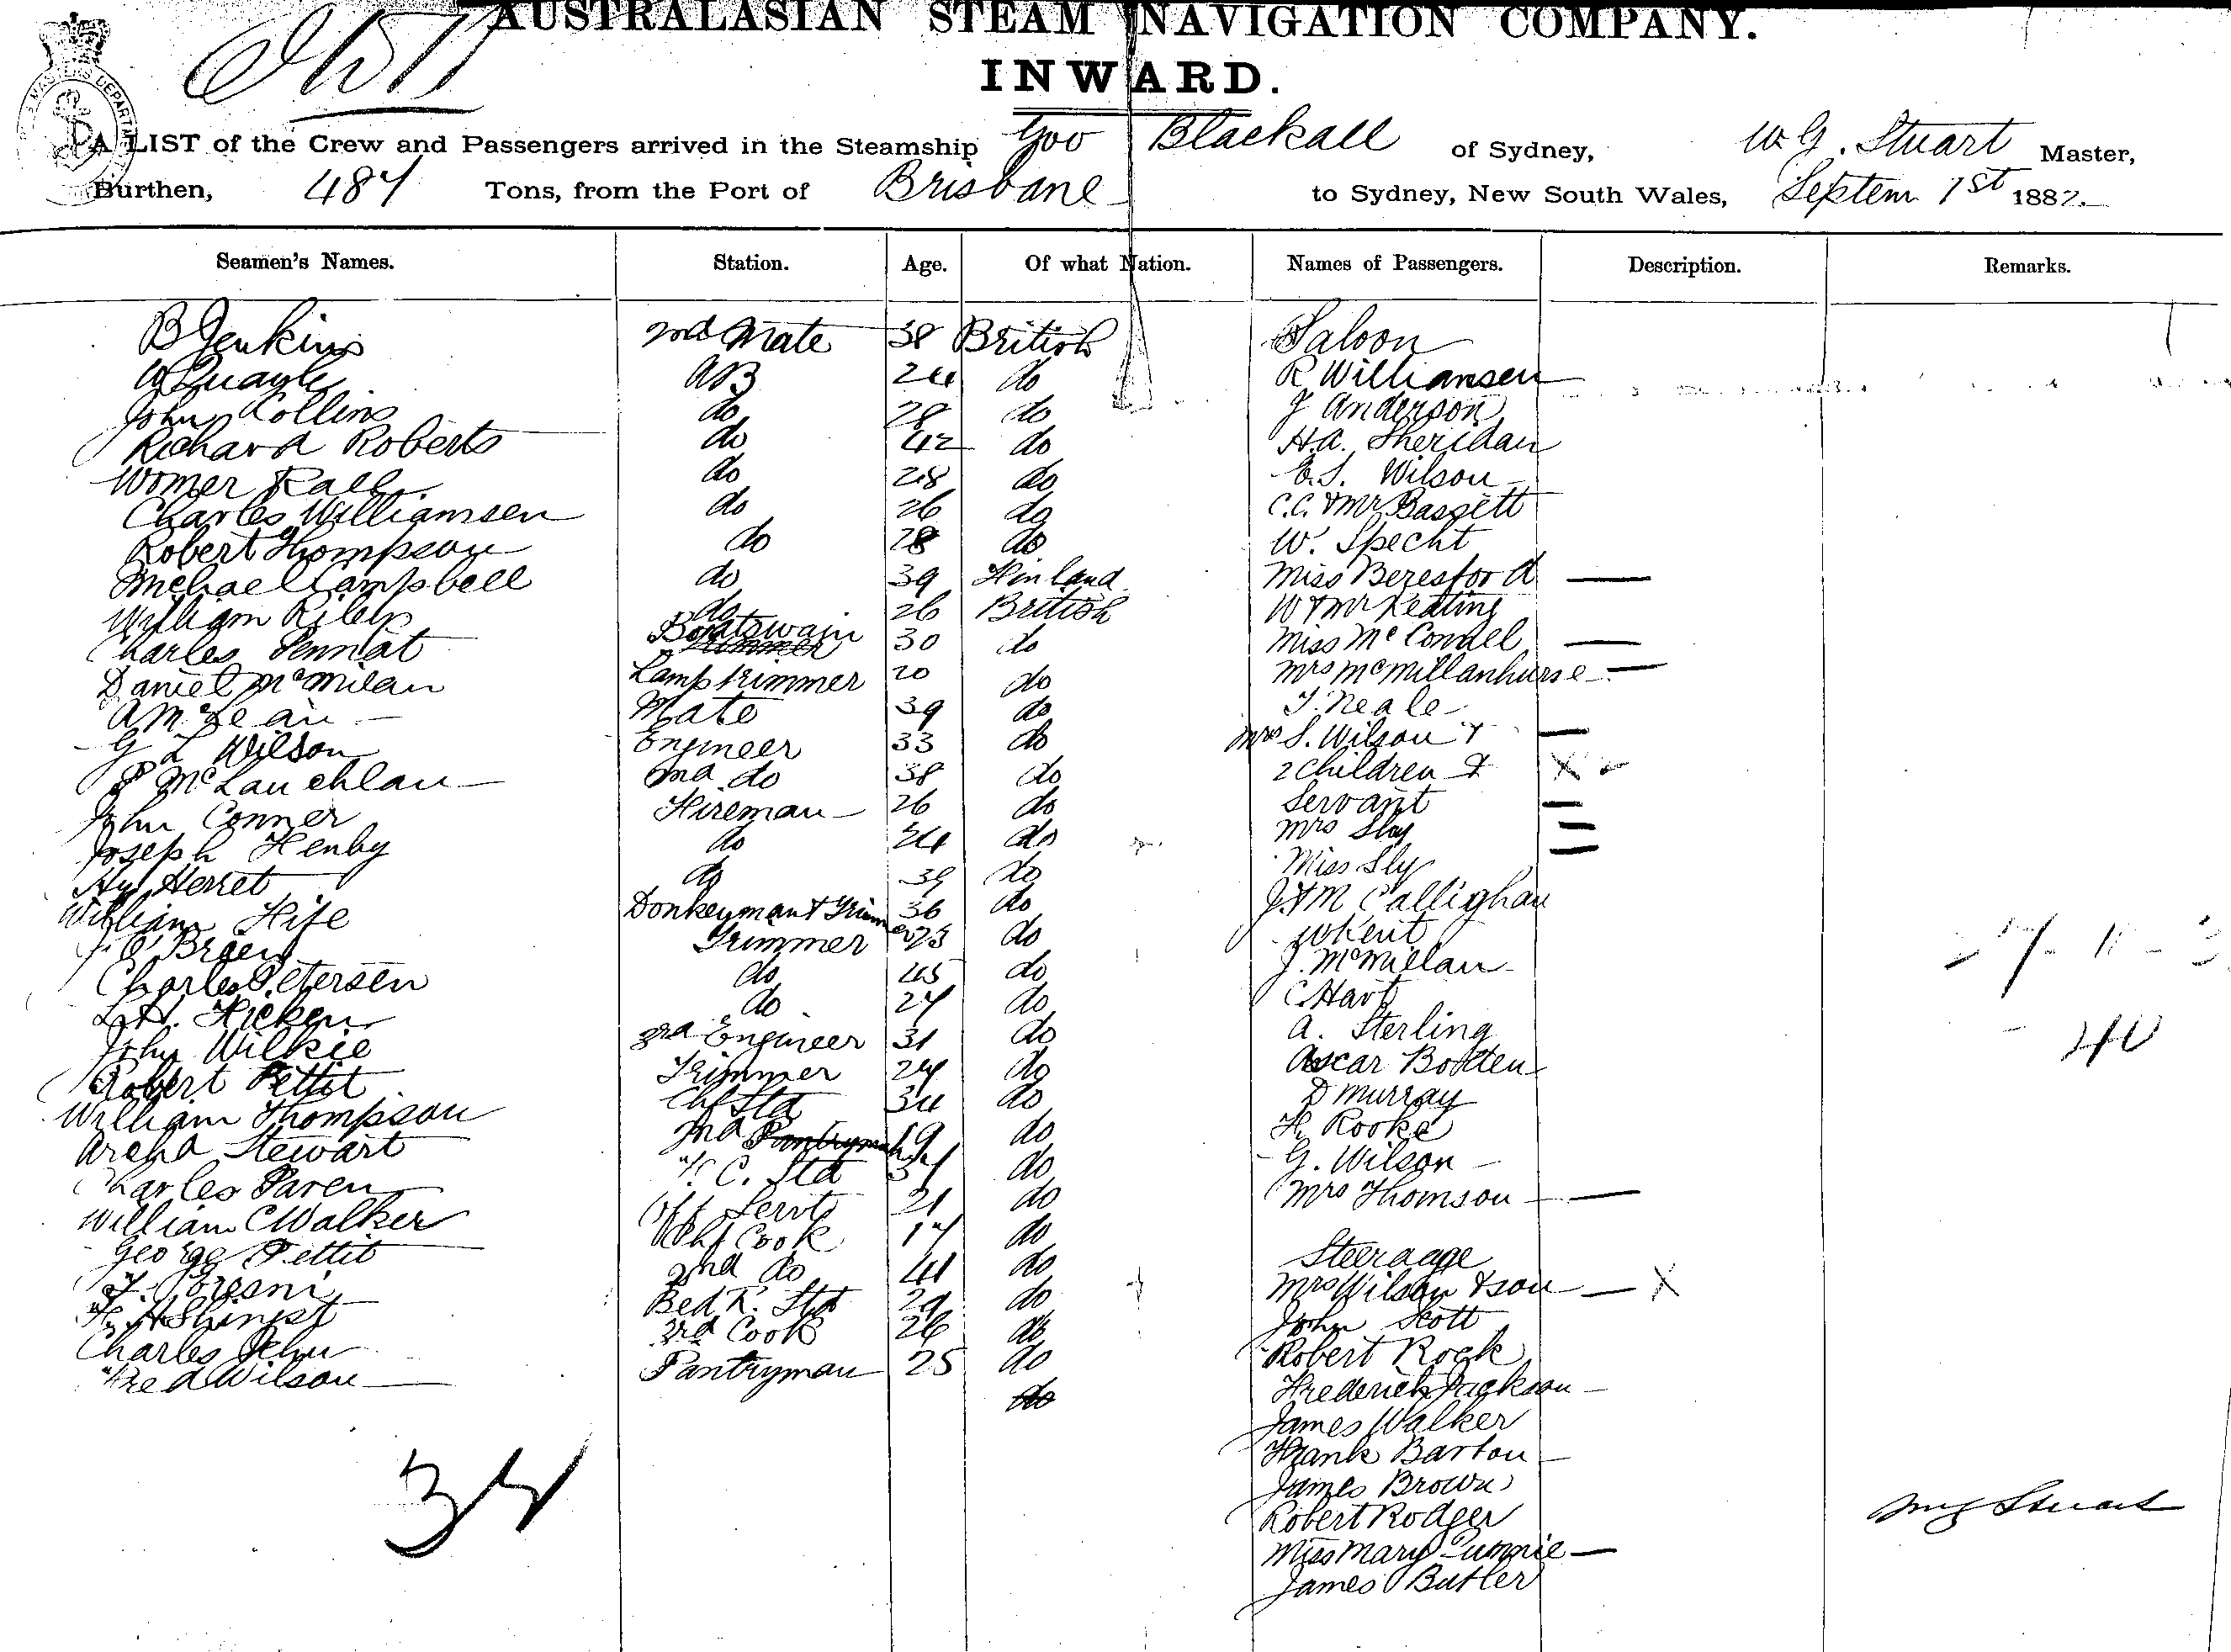 AUSTRALASIAN STEAM NAVIGATION COMPANY.
INWARD.
A LIST of the Crew and Passengers arrived in the Steamship Gov Blackall of Sydney, W. G. Stuart Master,
Burthen, 487 Tons, from the Port of Brisbane to Sydney, New South Wales, Septem 1st 1882.
Seamen's Names. Station. Age. Of what Nation. Names of Passengers. Description. Remarks.
B Jenkins 2nd Mate 38 British Saloon
W Quayle AB 24 do R Williamsen
John Collins do 28 do J Anderson
Richard Roberts do 42 do H.A. Sheridan
Womer Rall do 28 do E.S. Wilson
Charles Williamsen do 26 do C.C. & Mr Bassett
Robert Thompson do 28 do W. Specht
Michael Campbell do 39 Finland Miss Beresford
William Riley do 26 British W & Mr Keating
Charles Penniat Boatswain 30 do Miss McConnel
Daniel McMilan Lamptrimmer 20 do Mrs McMillanhurse
A McLean Mate 39 do T. Neale
G L Wilson Engineer 33 do Mrs S. Wilson &
P McLauchlan 2nd do 38 do 2 Children &
John Conner Fireman 26 do Servant
Joseph Henby do 24 do Mrs Sly
Hy Herret do 39 do Miss Sly
William Fife Donkeyman & Trimmer 36 do J & M Callighan
J. O'Brien Trimmer 23 do J W Kent
Charles Petersen do 45 do J. McMillan
L.H. Hicken do 27 do C Hart
John Wilkie 3rd Engineer 31 do A. Sterling
Robert Pettit Trimmer 24 do Ascar Botten
William Thompson Chf Std 34 do D Murray
Archd Stewart 2nd Pantryman 19 do H. Rooke
Charles Paren F.C. Std 37 do G. Wilson
William C Walker Off Servt 21 do Mrs Thomson
George Pettit Chf Cook 17 do Steerage
2nd do 41 do Mrs Wilson & son
H. Bed R. Std 29 do John Scott
Charles John 3rd Cook 26 do Robert Rock
Fred Wilson Pantryman 25 do Frederick Jackson
do James Walker
Frank Barton
James Brown
34
Robert Rodger
W G Stuart
Miss Mary
James Butler